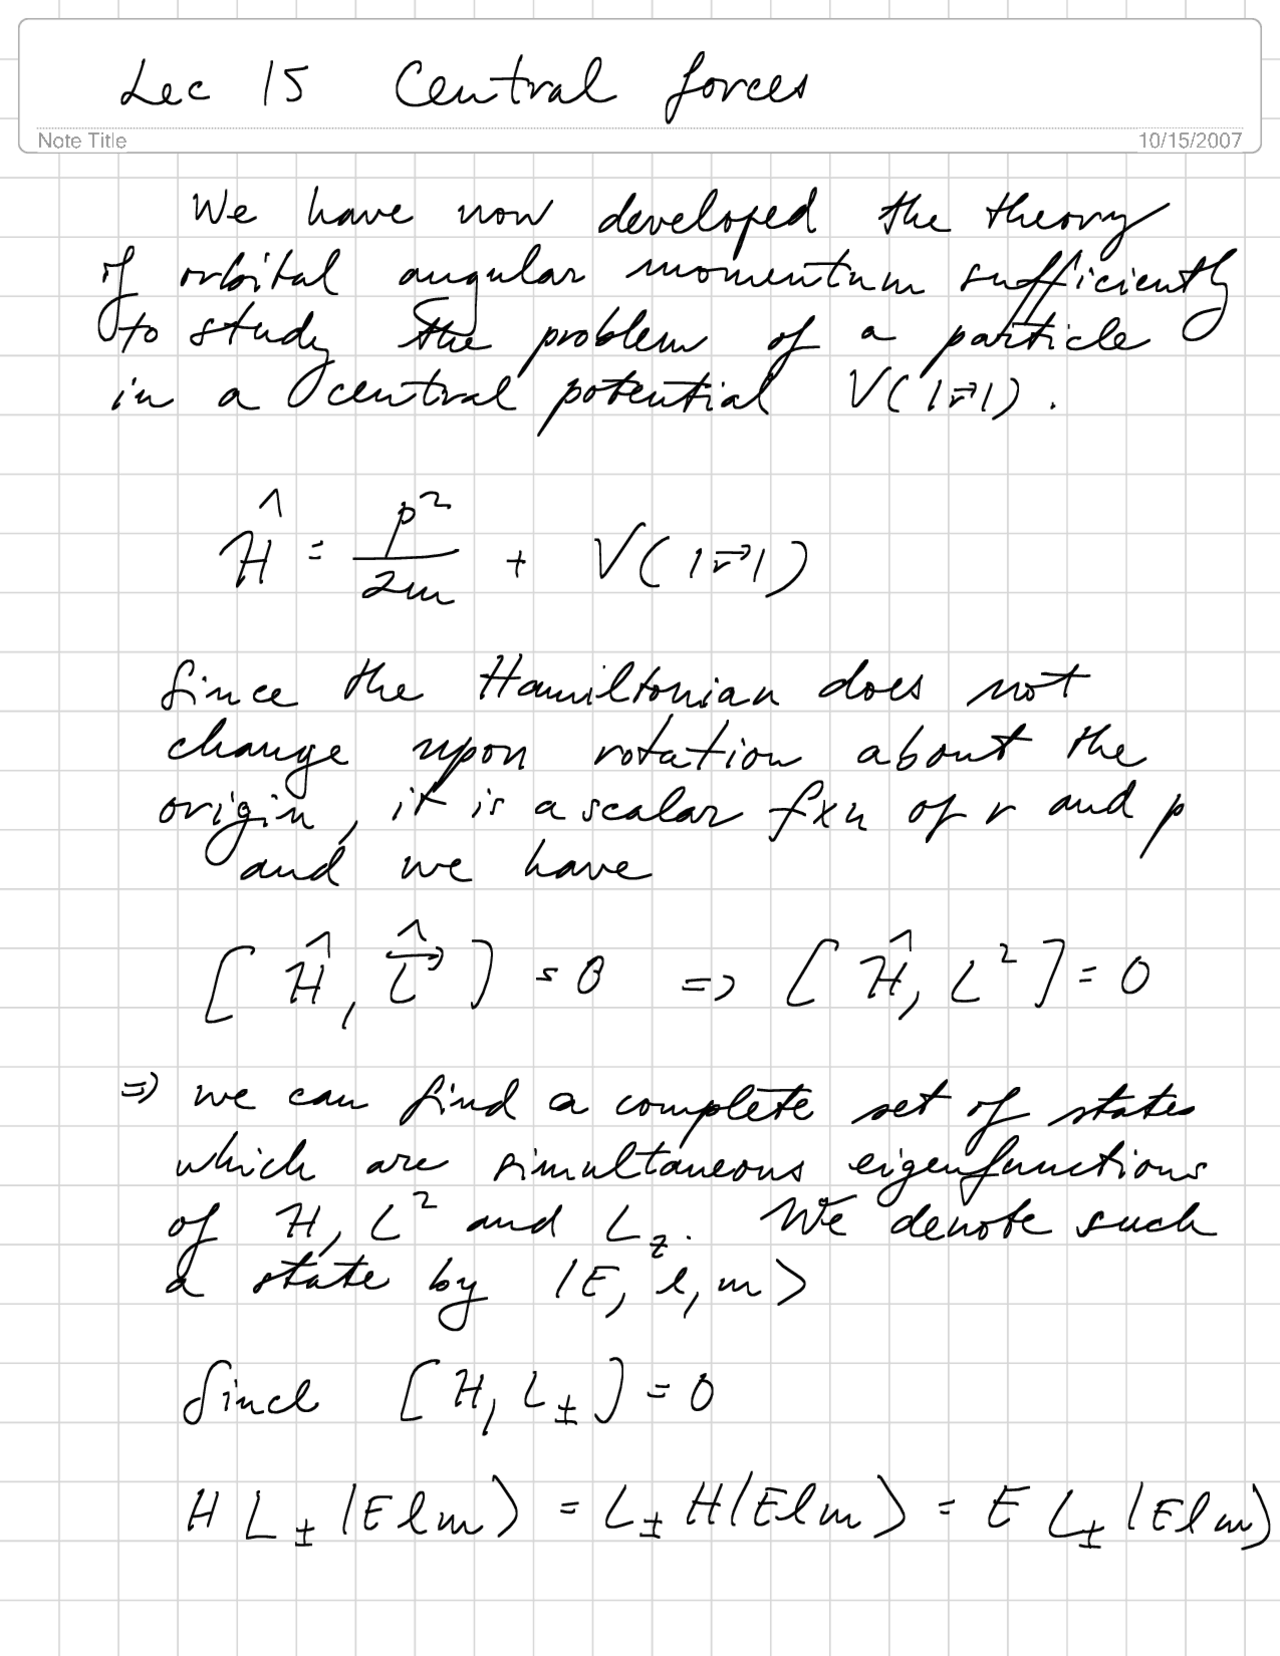 Lec 15 Central forces
Note Title 10/15/2007
We have now developed the theory
of orbital angular momentum sufficiently
to study the problem of a particle
in a central potential V(|r⃗|).
Ĥ = p²/2m + V(|r⃗|)
Since the Hamiltonian does not
change upon rotation about the
origin, it is a scalar fxn of r and p
and we have
[Ĥ, L⃗̂] = 0 => [Ĥ, L²] = 0
=> we can find a complete set of states
which are simultaneous eigenfunctions
of H, L² and L_z. We denote such
a state by |E, l, m>
Since [H, L_±] = 0
H L_± |E l m> = L_± H |E l m> = E L_± |E l m>